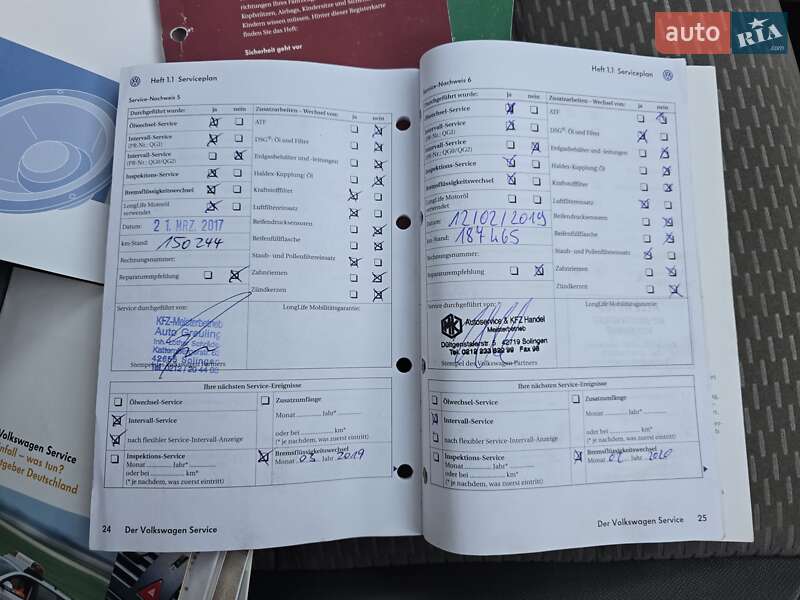 richtungen Ihres Fahrzeug
Kopfstützen, Airbags, Kindersitze und Sicher
Kinder wissen müssen. Hinter dieser Registerkarte
finden Sie das Heft:
Sicherheit geht vor
auto RIA.com
Heft 1.1 Serviceplan
Service-Nachweis 5
Durchgeführt wurde: ja nein
Ölwechsel-Service
Intervall-Service
(PR-Nr.: QG1)
Intervall-Service
(PR-Nr.: QG0/QG2)
Inspektions-Service
Bremsflüssigkeitswechsel
LongLife Motoröl
verwendet
Datum: 21. MRZ. 2017
km-Stand: 150 244
Rechnungsnummer:
Reparaturempfehlung
Zusatzarbeiten – Wechsel von: ja nein
ATF
DSG®-Öl und Filter
Erdgasbehälter und -leitungen
Haldex-Kupplung: Öl
Kraftstofffilter
Luftfiltereinsatz
Reifendrucksensoren
Reifenfüllflasche
Staub- und Pollenfiltereinsatz
Zahnriemen
Zündkerzen
Service durchgeführt von:
LongLife Mobilitätsgarantie:
KFZ-Meisterbetrieb
Auto Greuling
42655 Solingen
Tel. 0212 /
Stempel des Volkswagen Partners
Ihre nächsten Service-Ereignisse
Ölwechsel-Service
Intervall-Service
nach flexibler Service-Intervall-Anzeige
Inspektions-Service
Monat Jahr*
oder bei km*
(* je nachdem, was zuerst eintritt)
Zusatzumfänge
Monat Jahr*
oder bei km*
(* je nachdem, was zuerst eintritt)
Bremsflüssigkeitswechsel
Monat 03 Jahr 2019
24 Der Volkswagen Service
Heft 1.1 Serviceplan
Service-Nachweis 6
Durchgeführt wurde: ja nein
Ölwechsel-Service
Intervall-Service
(PR-Nr.: QG1)
Intervall-Service
(PR-Nr.: QG0/QG2)
Inspektions-Service
Bremsflüssigkeitswechsel
LongLife Motoröl
verwendet
Datum: 12/02/2019
km-Stand: 187465
Rechnungsnummer:
Reparaturempfehlung
Zusatzarbeiten – Wechsel von: ja nein
ATF
DSG®-Öl und Filter
Erdgasbehälter und -leitungen
Haldex-Kupplung: Öl
Kraftstofffilter
Luftfiltereinsatz
Reifendrucksensoren
Reifenfüllflasche
Staub- und Pollenfiltereinsatz
Zahnriemen
Zündkerzen
Service durchgeführt von:
LongLife Mobilitätsgarantie:
Autoservice & KFZ Handel
Meisterbetrieb
42719 Solingen
Stempel des Volkswagen Partners
Ihre nächsten Service-Ereignisse
Ölwechsel-Service
Intervall-Service
nach flexibler Service-Intervall-Anzeige
Inspektions-Service
Monat Jahr*
oder bei km*
(* je nachdem, was zuerst eintritt)
Zusatzumfänge
Monat Jahr*
oder bei km*
(* je nachdem, was zuerst eintritt)
Bremsflüssigkeitswechsel
Monat 02 Jahr 2020
Der Volkswagen Service 25
Volkswagen Service
nfall – was tun?
tgeber Deutschland